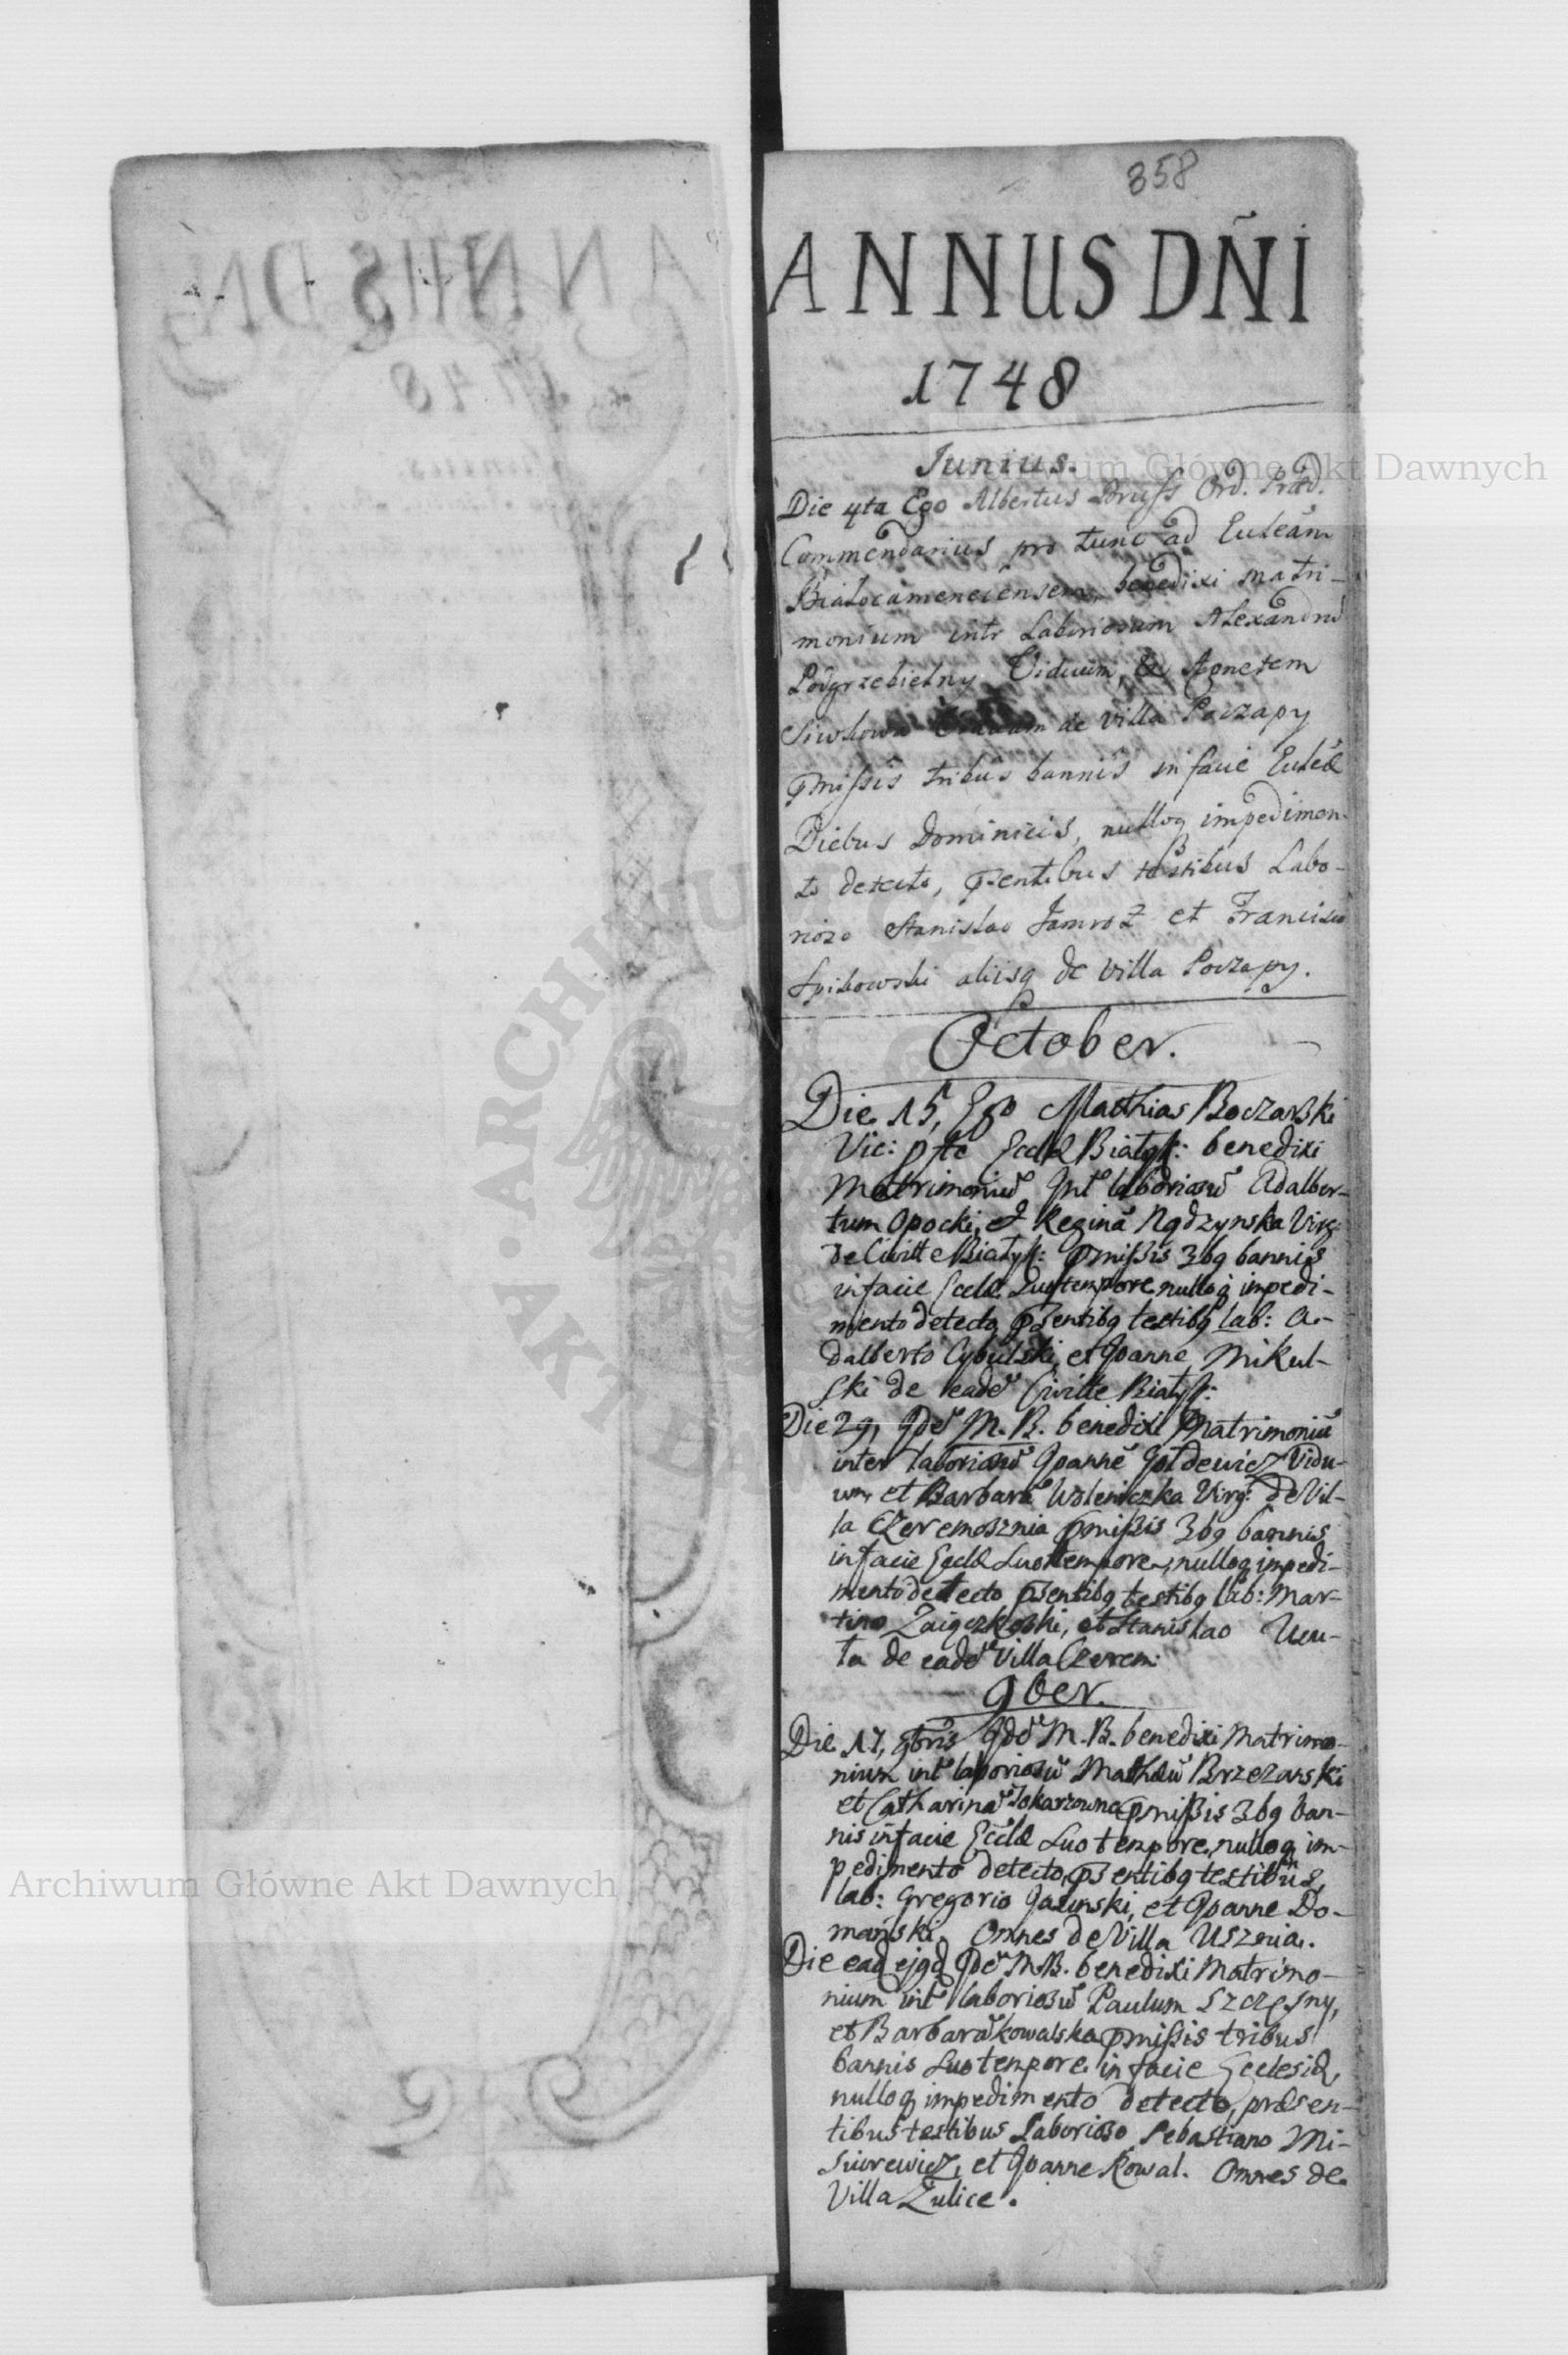 358
ANNUS DÑI
1748
Junius.
Die 4ta Ego Albertus Pruss Ord. Præd.
Commendarius pro tunc ad Eccleam
Białocamenecensem, benedixi matri-
monium intr Laboriosum Alexandrũ
Podgrzebielny Viduum, & Agnetem
de Villa Poczapy
pmissis tribus bannis in facie Eccleæ
Diebus Dominicis, nulloq impedimen-
to detecto, psentibus testibus Labo-
rioso Stanislao Jamroz et Francisco
Spikowski aliisq de Villa Poczapy.
October.
Die 15, Ego Mathias Boczarski
Vic: pte Eccl Białyk: benedixi
Matrimoniũ Int laboriosũ Adalber-
tum Opocki, et Reginã Nądzynska Virg:
de Civitte Białyk: pmissis 3bq bannis
in facie Eccle Suo tempore nulloq impedi-
mento detecto psentibq testibq Lab: A-
dalberto Cybulski, et Joanne Mikul-
ski de eadẽ Civitte Białyk:
Die 29, Idẽ M. B. benedixi Matrimoniũ
inter laboriosũ Joannẽ Goldewicz Vidu-
um, et Barbarã Woleniczka Virg: de Vil-
la Czeremosznia pmissis 3bq bannis
in facie Eccle Suo tempore, nulloq impedi-
mento detecto psentibq testibq Lab: Mar-
tino Zaigczkoski, et Stanislao
ta de eadẽ Villa Czerem:
9ber.
Die 17, 9bris Idẽ M. B. benedixi Matrimo-
nium int laboriosũ Mathæũ Brzezanski
et Catharinã Tokarzowna pmissis 3bq ban-
nis in facie Eccle Suo tempore, nulloq im-
pedimento detecto, psentibq testibus,
lab: Gregorio Jasinski, et Joanne Do-
mański. Omnes de Villa Usznia.
Die ead ejqd Idẽ M.B. benedixi Matrimo-
nium int laboriosũ Paulum Szczęsny,
et Barbarã Kowalska pmissis tribus
bannis Suo tempore in facie Ecclesiæ,
nulloq impedimento detecto, præsen-
tibus testibus Laborioso Sebastiano Mi-
siurewicz, et Joanne Kowal. Omnes de
Villa Żulice.
Archiwum Główne Akt Dawnych
Archiwum Główne Akt Dawnych